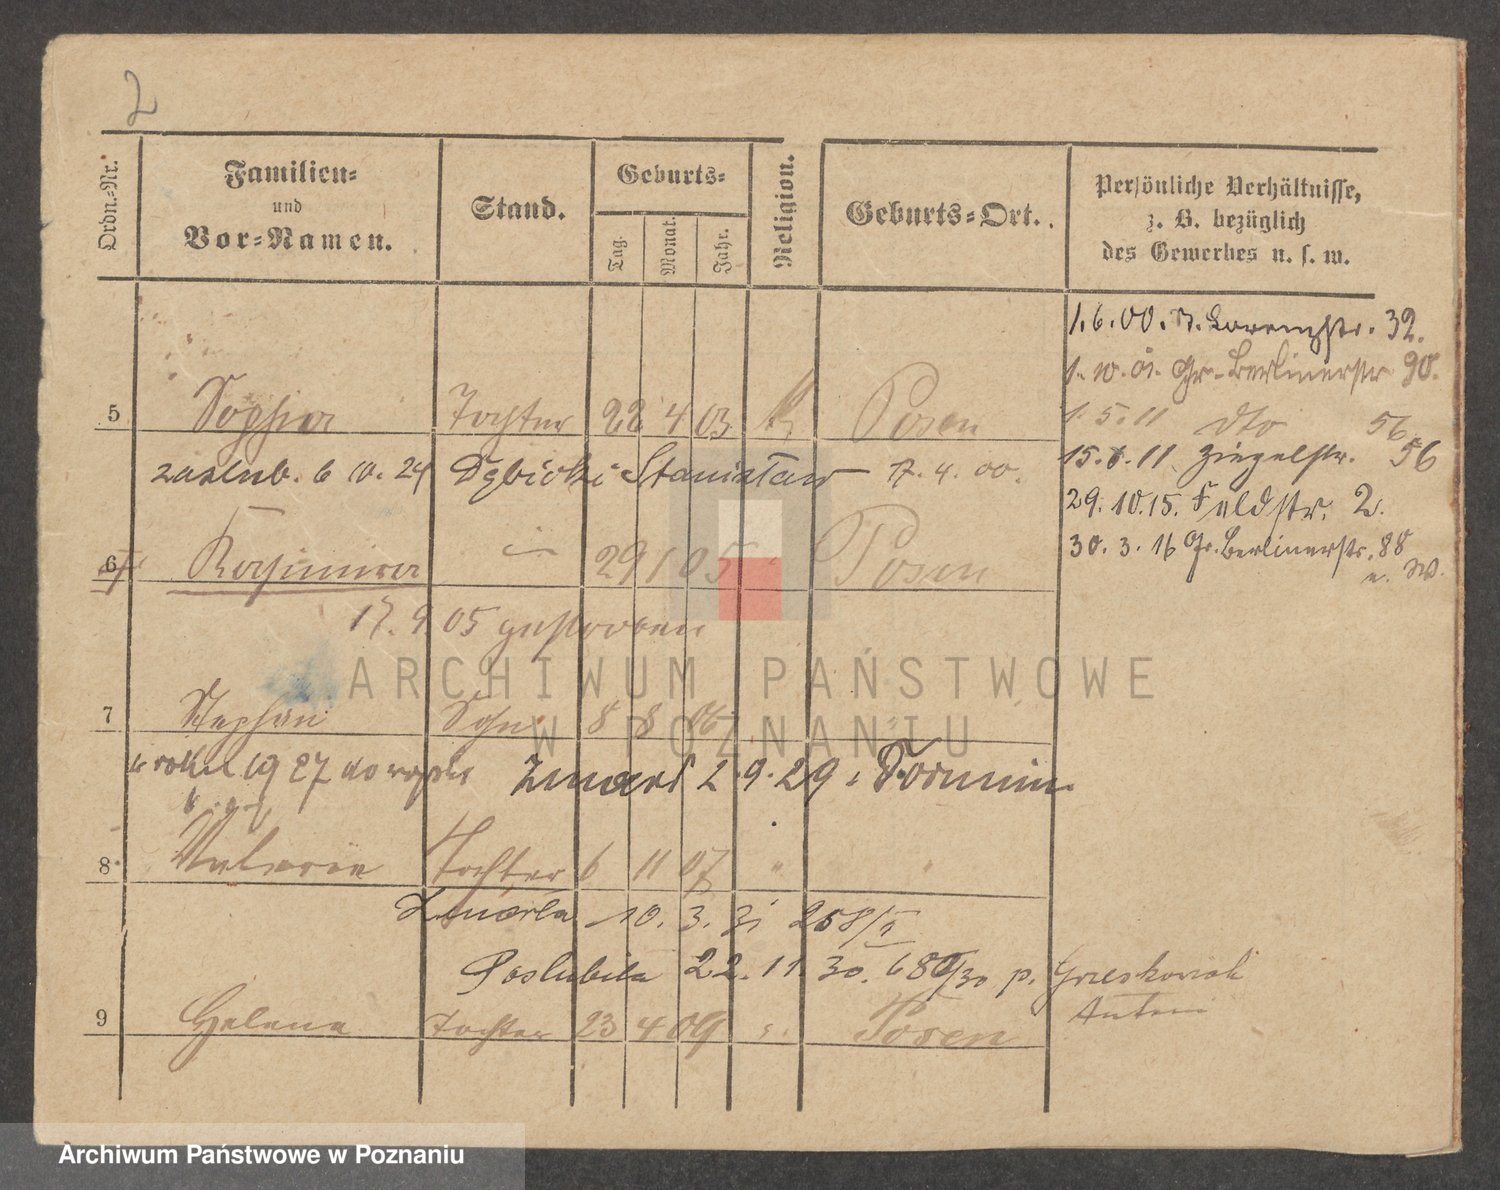 2
Ordn.-Nr.
Familien-
und
Vor-Namen.
Stand.
Geburts-
Tag.
Monat.
Jahr.
Religion.
Geburts-Ort.
Persönliche Verhältnisse,
z. B. bezüglich
des Gewerbes u. s. w.
1.6.00. St. Lorenzstr. 32.
1.10.01. Gr. Berlinerstr 90.
1.5.11 dto 56
15.8.11 Ziegelstr. 56
29.10.15. Feldstr. 2.
30.3.16 Gr. Berlinerstr. 88
u. W.
5 Sophia Tochter 22 4 03 k Posen
zaslub. 6 10. 24 Dębicki Stanisław 17.4.00.
6 Kasimira 29 1 05 Posen
17.9 05 gestorben
7 Stephan Sohn 8 8 06
w roku 1927 do wojska Zmarł 2.9.29 Toruniu
8 Valerie Tochter 6 11 07 " "
Zmarła 10. 3. 31 258/II
Poslubila 22.11.30. 680/30 p.
Antoni
9 Helena Tochter 23 4 09 Posen
ARCHIWUM PAŃSTWOWE
W POZNANIU
Archiwum Państwowe w Poznaniu